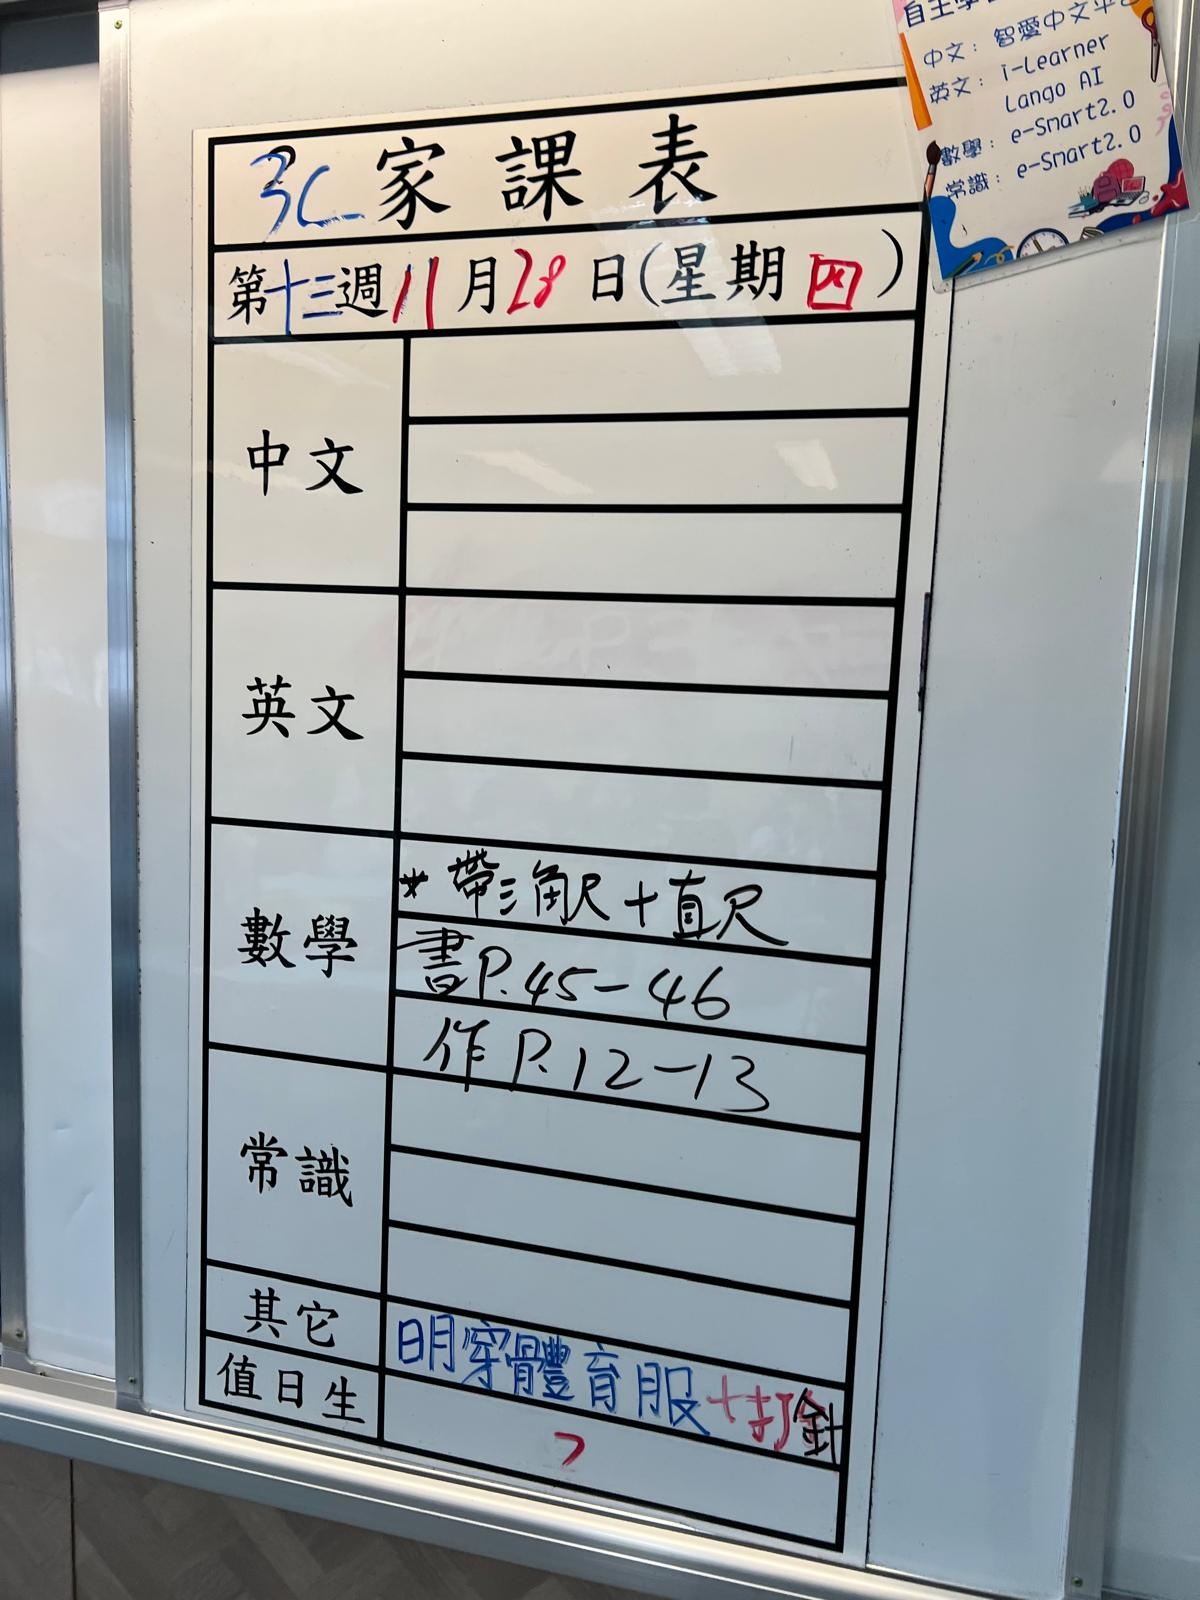 自主學
中文：智愛中文平台
英文：i-Learner
Lango AI
數學：e-Smart2.0
常識：e-Smart2.0
3C 家課表
第十三週 11月28日(星期四)
中文
英文
數學
* 帶三角尺+直尺
書P.45-46
作P.12-13
常識
其它
明穿體育服+打針
值日生
7